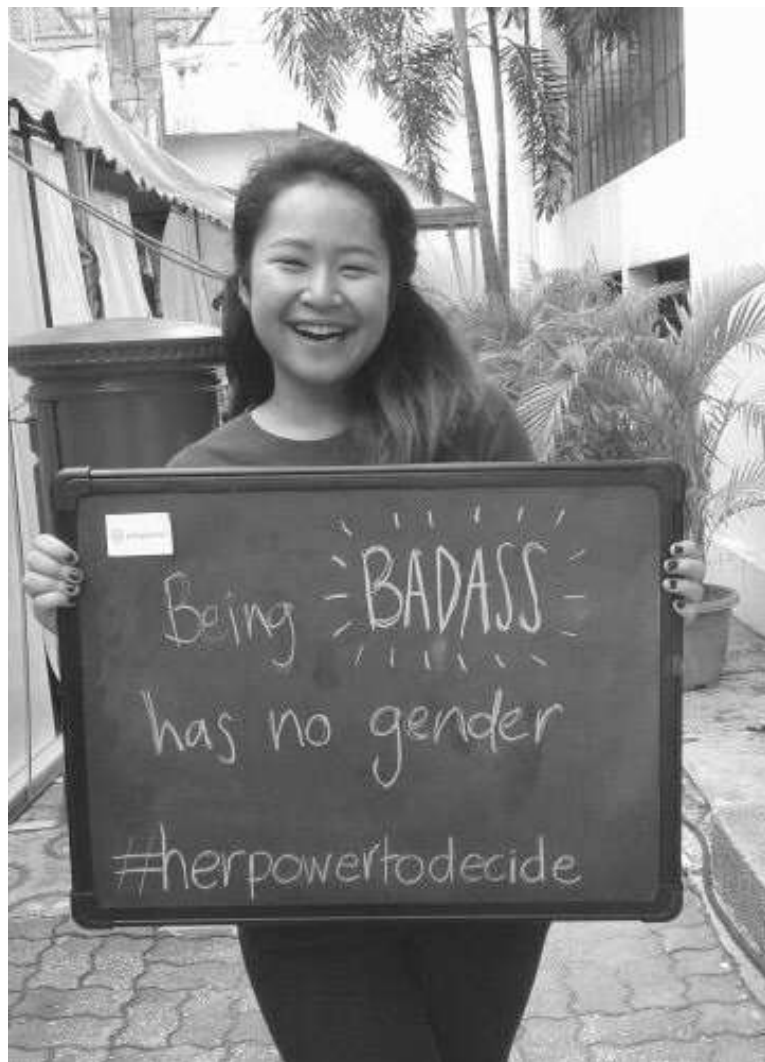 Being BADASS
has no gender
#herpowertodecide